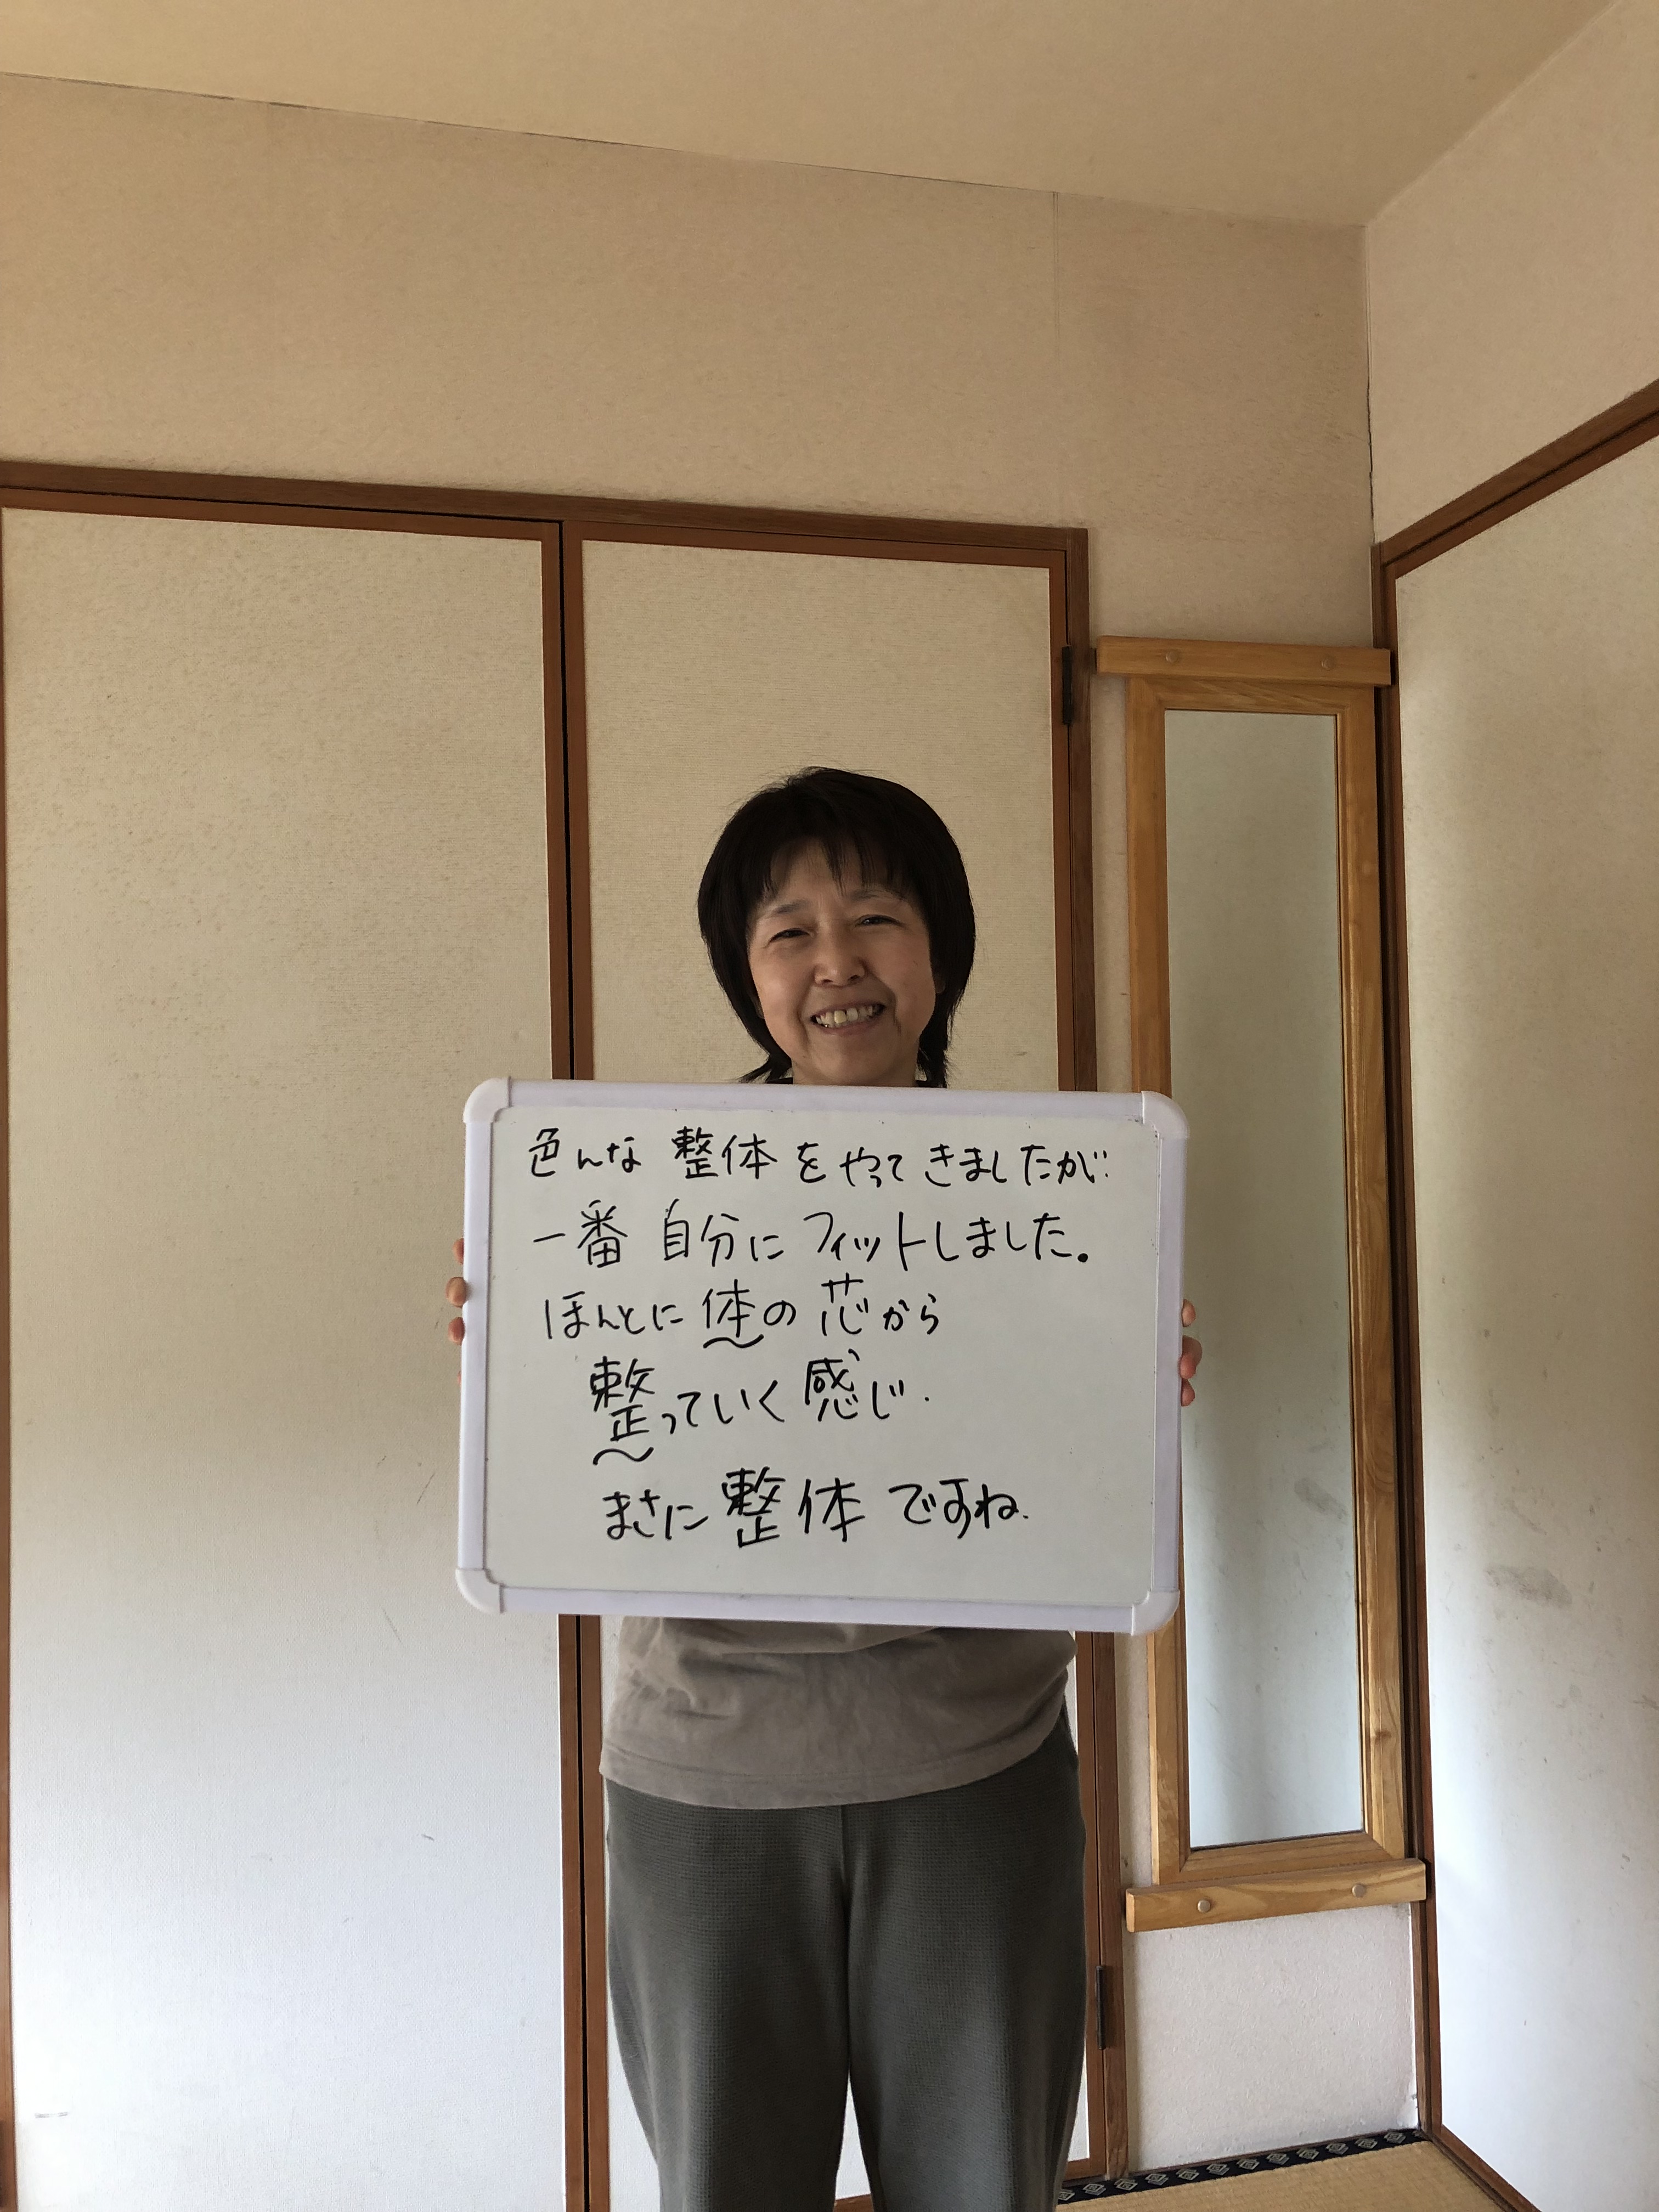 色んな 整体 をやってきましたが
一番 自分に フィットしました。
ほんとに 体の 芯から
整っていく 感じ.
まさに 整体 ですね.